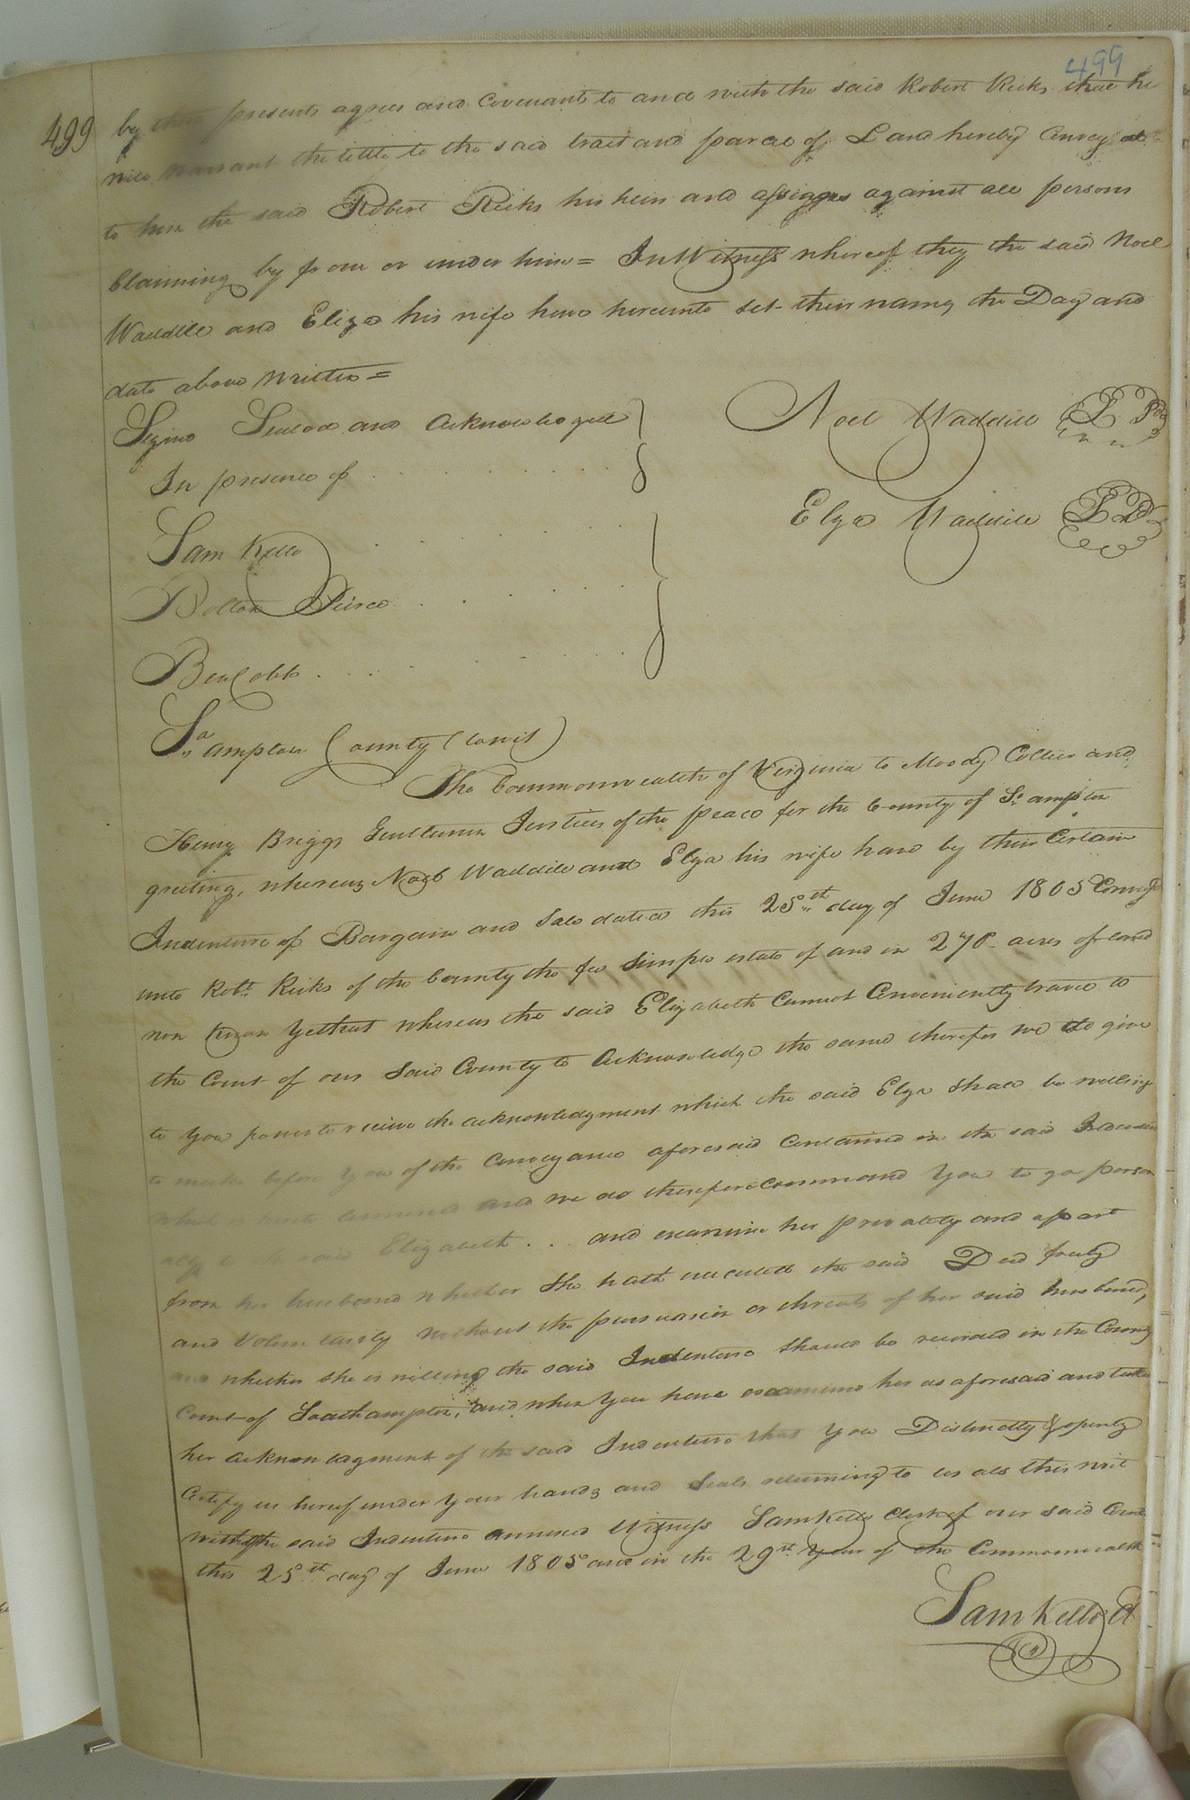 499
499
by these presents agrees and covenants to and with the said Robert Ricks that he
will warrant the tittle to the said tract and parcel of Land hereby Convey'd
to him the said Robert Ricks his heirs and assignes against all persons
Claiming by from or under him = In Witness whereof they the said Noel
Waddill and Eliza his wife have hereunto set their names the Day and
date above written =
Signd Sealed and Acknowledged
In presence of
Noel Waddill
Eliza Waddill
Sam Kello
Bolton Pierce
Ben Cobb
So,,ampton County (towit)
The Commonwealth of Virginia to Moody Collier and
Henry Briggs Gentlemen Justices of the peace for the County of So. ampton
greeting, whereas Noel Waddill and Eliza his wife have by their Certain
Indenture of Bargain and Sale dated this 25th day of June 1805 Convey'd
unto Robt. Ricks of the County the fee simple estate of and in 270 acres of land
now know ye that whereas the said Elizabeth Cannot Conveniently travel to
the Court of our said County to Acknowledge the same therefor we do give
to you power to receive the acknowledgment which the said Eliza shall be willing
to make before you of the Conveyance aforesaid Contained in the said Indenture
which is hereto annexed and we do therefore Command you to go person
ally to the said Elizabeth .. and examine her privately and apart
from her husband whether She hath executed the said Deed freely
and Voluntarily without the persuasion or threats of her said husband,
and whether she is willing the said Indenture should be recorded in the County
Court of Southampton, and when you have examined her as aforesaid and taken
her acknowlagment of the said Indenture that you Distinctly & openly
Certify us hereof under your hands and seals returning to us also this writ
with the said Indenture annexed Witness Sam Kello Clerk of our said Court
this 25th day of June 1805 and in the 29st Year of the Commonwealth
Sam Kello Cl